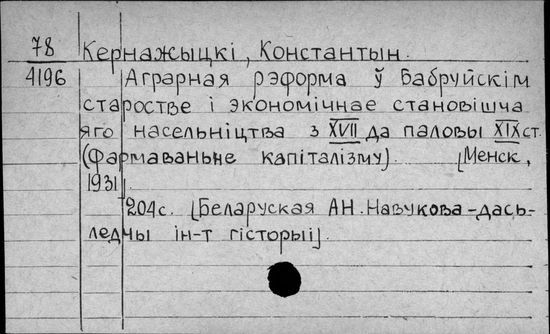 78 Кернажыцкі, Константын.
4196 Аграрная рэформа ў Бабруйскім
старостве і экономічнае становішча
яго насельніцтва з XVII да паловы XIX ст.
(Фармаваньне капіталізму). [Менск,
1931].
204 с. [Беларуская АН. Навукова-дась-
ледчы ін-т гісторыі].